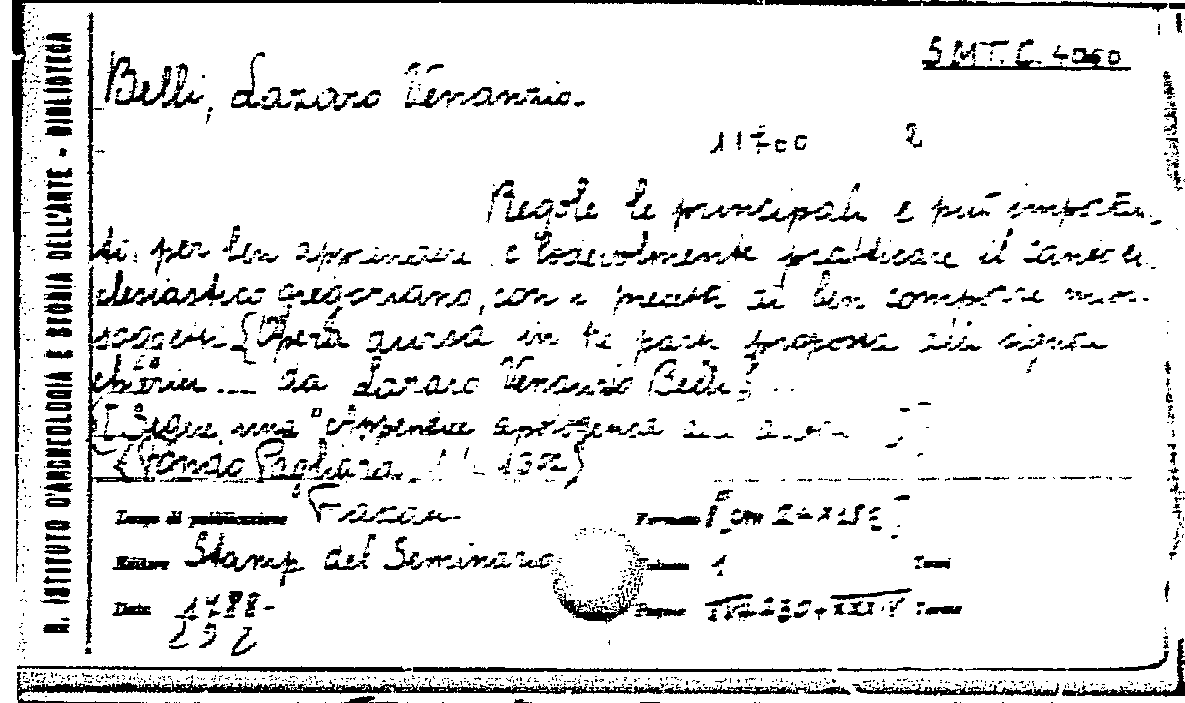 R. ISTITUTO D'ARCHEOLOGIA E STORIA DELL'ARTE - BIBLIOTECA
S.M.T.C. 4060
Belli, Lazaro Venanzio.
11700 2
Regole le principali e più importan-
ti, per ben apprendere e lodevolmente pratticare il canto ec-
clesiastico gregoriano, con i precetti di ben comporre
soggetti [Opera divisa in tre parti proposta alli signori
da Lazaro Venanzio Belli]
[Segue una "Appendice apologetica
{Fondo Pagliara,
Luogo di pubblicazione Frascati Formato [cm 24x18½]
Editore Stamp del Seminario Volume 1 Tomi
Data 1788- Pagine 230+XXXIV Tavole
252